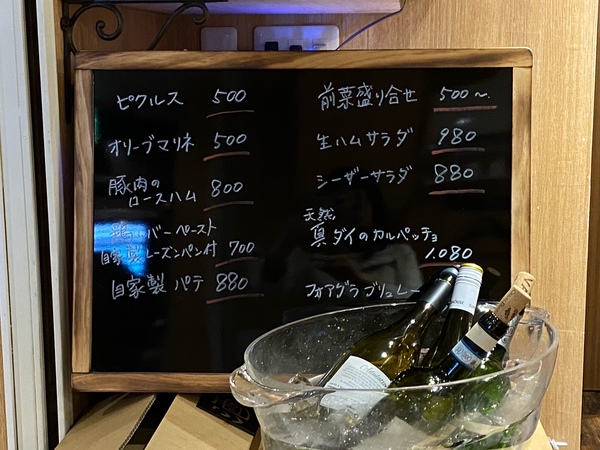 ピクルス 500
オリーブマリネ 500
豚肉の
ロースハム 800
鶏レバーペースト
自家製レーズンパン付 700
自家製 パテ 880
前菜盛り合せ 500〜
生ハムサラダ 980
シーザーサラダ 880
天然
真ダイのカルパッチョ
1.080
フォアグラブリュレー